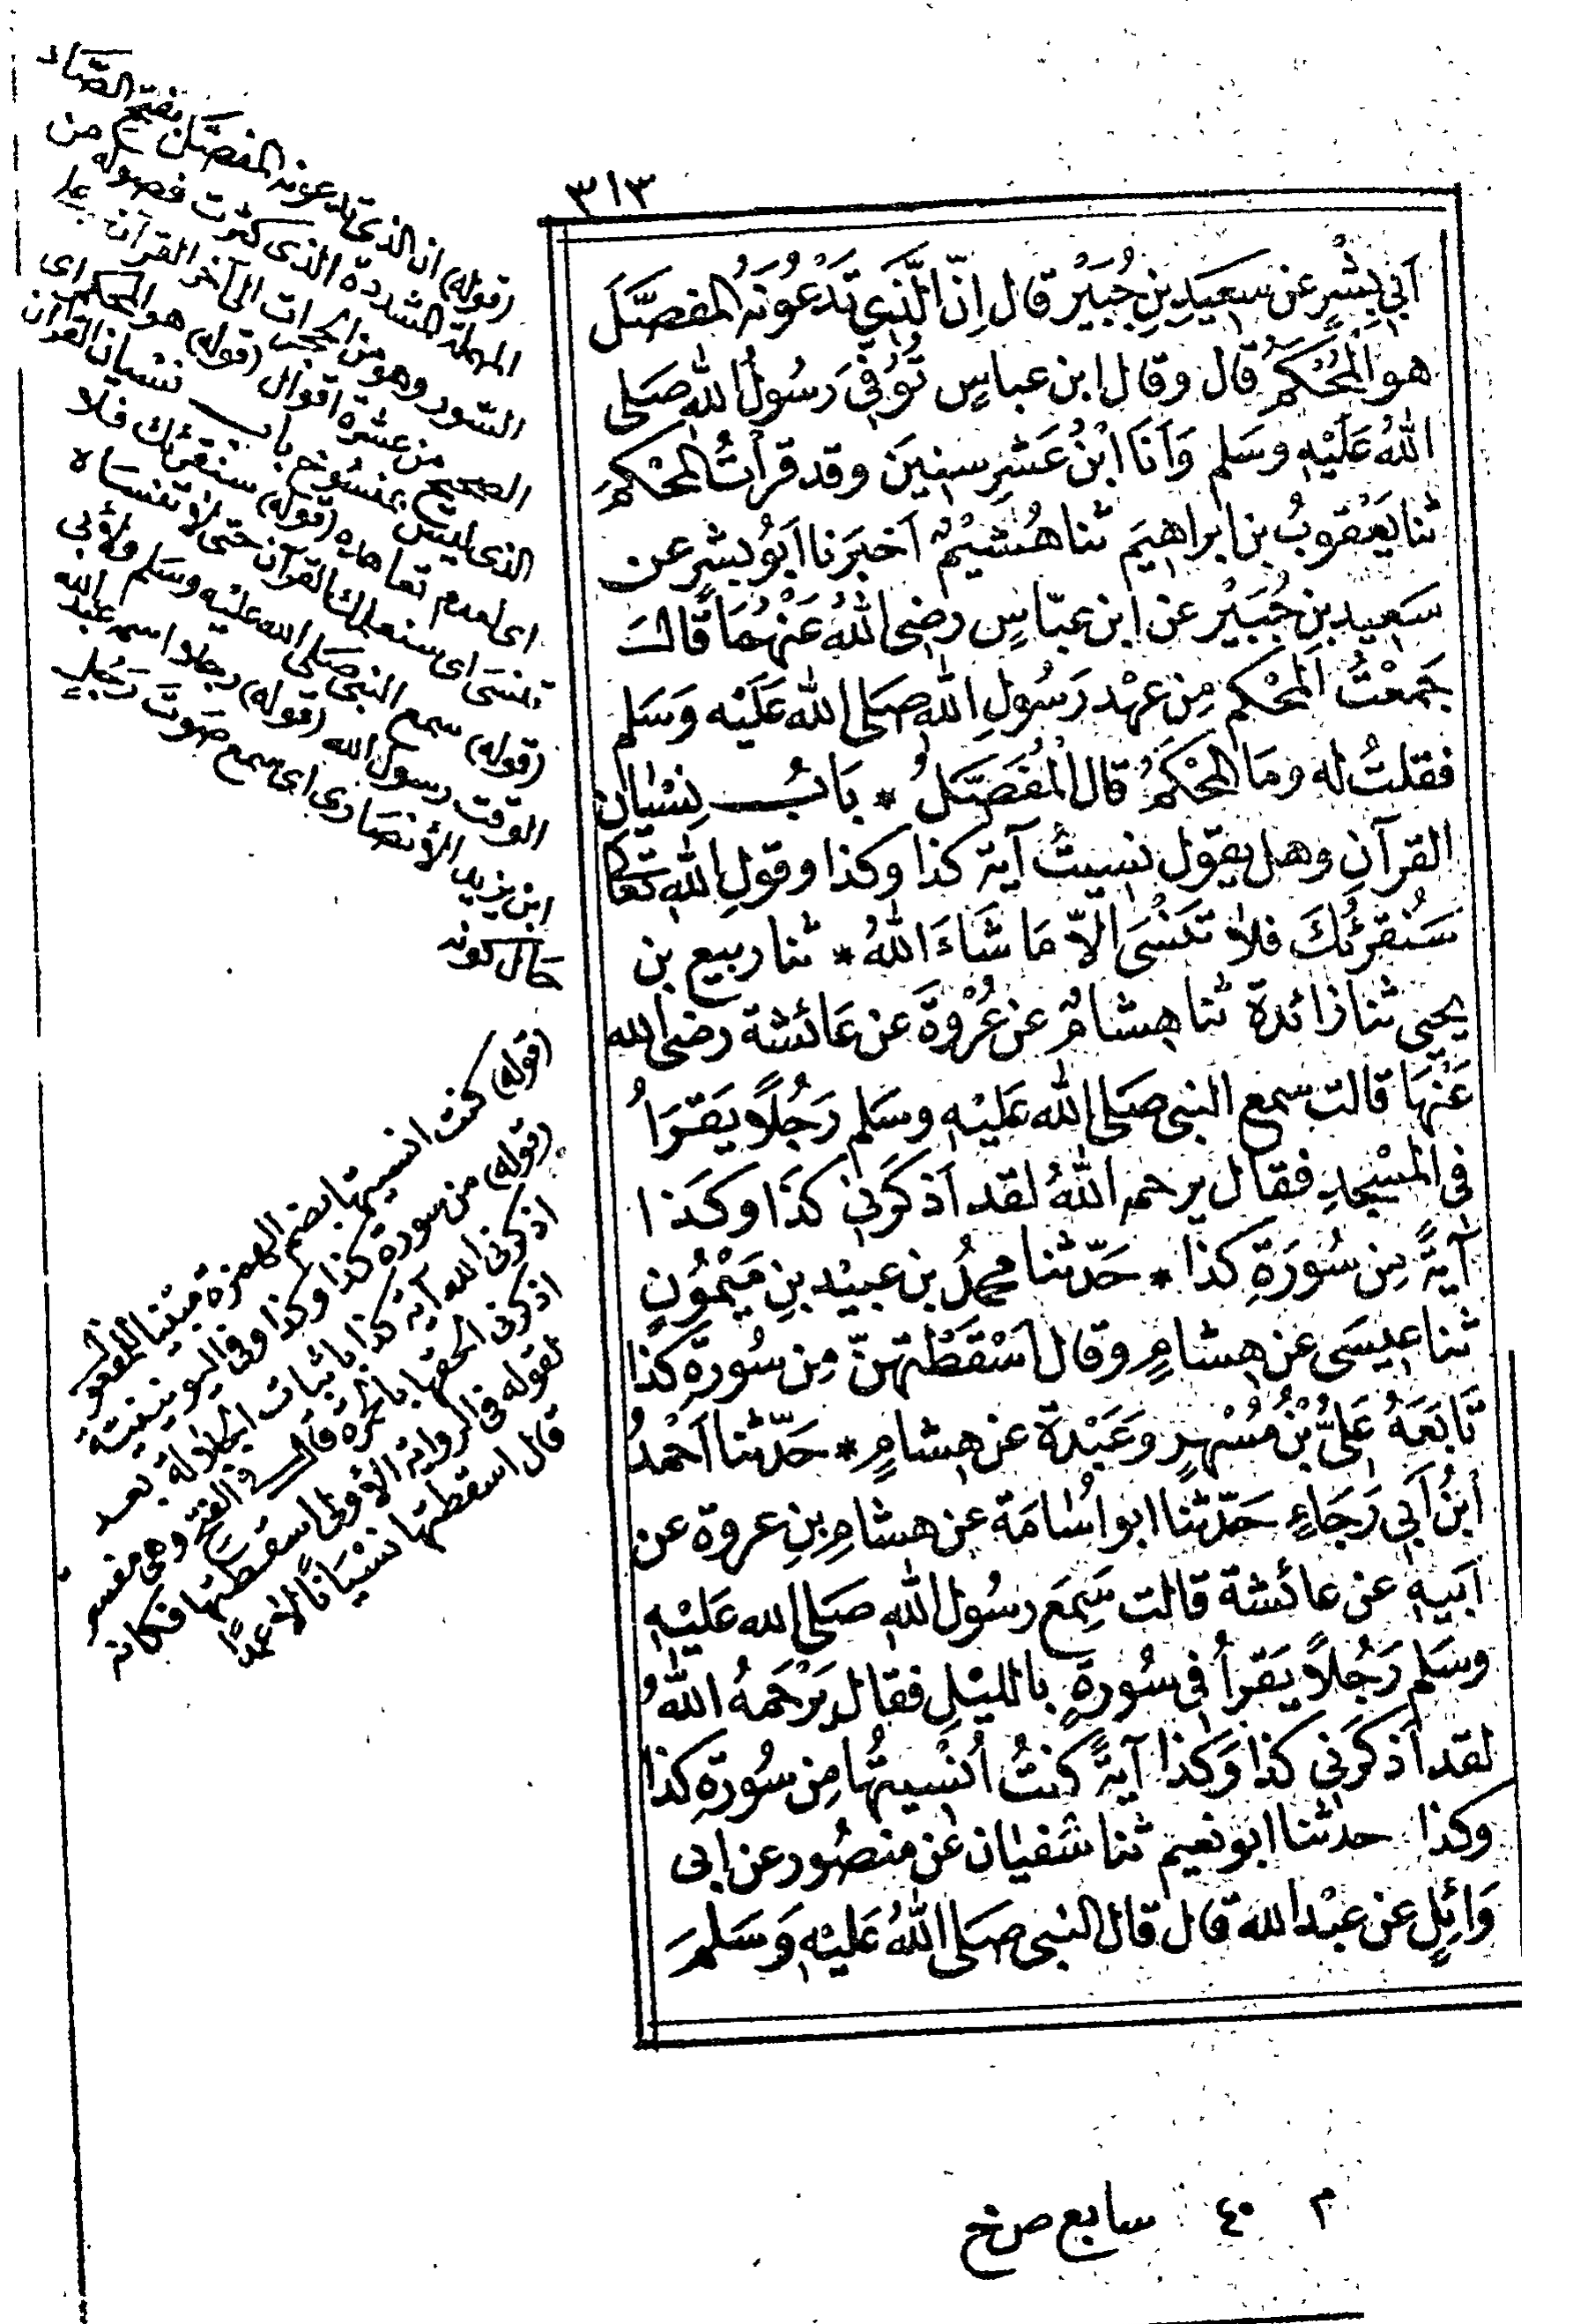 ٣١٣
اَبِي بِشْرٍ عن سَعِيدِ بنِ جُبَيْرٍ قال اِنّ الَّذِي تَدْعُونَهُ المفصَّلَ
هو المُحْكَمُ قال وقال ابن عباسٍ تُوُفِّيَ رَسُولُ اللهِ صَلى
اللهُ عَلَيْهِ وسَلم وَاَنَا ابْنُ عَشْرِ سِنِينَ وقد قرأتُ المُحْكَمَ
ثنا يَعْقوبُ بن ابراهِيمَ ثنا هُشَيْمٌ اَخبَرَنا اَبُو بِشرٍ عن
سَعِيدِ بنِ جُبَيْرٍ عن ابن عبّاسٍ رضى اللهُ عَنْهُمَا قالَ
جَمعْتُ المُحْكم مِن عهْد رَسُولِ اللهِ صَلى اللهُ عَلَيْه وَسَلم
فقلتُ له ومَا المحْكَمُ قال المُفَصَّلُ * بَابُ نِسْيَان
القرآنِ وهل يقول نسِيتُ آيَة كذا وكذا وقولِ اللهِ تَعَالى
سَنُقْرِئُكَ فلا تَنْسَى الاّ مَا شَاءَ اللهُ * ثنا ربيع بن
يحيى ثنا زائدة ثنا هِشامٌ عن عُرْوَةَ عن عَائشة رضى الله
عَنْهَا قالت سمع النبى صَلى الله عَليْهِ وسَلم رَجُلًا يَقرَأُ
فى المسْجدِ فقال يرحمه اللهُ لقد اَذكَرَنى كذَا وكَذا
آيَةً مِن سُورَةِ كذا * حَدّثنا محمدُ بن عبيْد بنِ مَيْمُونٍ
ثنا عِيسَى عن هِشامٍ وقال اَسْقَطْتهنّ مِن سُورَةِ كذا
تَابَعَهُ عَلِىُّ بْنُ مُسْهِرٍ وَعَبْدَة عن هِشامٍ * حَدّثنا اَحْمدُ
ابْنُ اَبِي رَجَاءٍ حَدّثنا ابو اُسَامَة عن هشامِ بنِ عروة عن
اَبيهِ عن عائشة قالت سَمِعَ رسُول اللهِ صَلى الله عَليْهِ
وسَلم رَجُلاً يَقرأُ فى سُورَةٍ بالليْلِ فقال يَرْحَمهُ اللهُ
لقد اَذكَرَنى كذا وَكذا آيةً كنتُ اُنْسِيتُها مِن سُورَةِ كذا
وكذا حدثنا ابو نعيم ثنا سُفيان عن منصُور عن ابى
وَائِلٍ عن عبْد الله قال قال النبى صَلى اللهُ عَليْهِ وَسَلمَ
(قوله) ان الذى تدعونه المفصَّل بفتح الصَّاد
المهملة المشددة الذى كثرت فصوله من
السّور وهو من الحجرات الى آخر القرآن على
الصحيح من عشرة اقوال (قوله) هو المحكم اى
الذى ليس بمنسُوخ باب نسيان القرآن
اى لعدم تعاهده (قوله) سنقرئك فلا
تنسى اى سنعلمك القرآن حتى لا تنساه
(قوله) سمع النبى صَلى الله عليْه وسَلم ولأبى
الوقت رسول الله (قوله) رجلا اسمه عبد الله
ابن يزيد الأنصَارى اى سمع صَوت رَجُلٍ
حَال كونه
(قوله) كنت انسيتها بضم الهمزة مبنيا للمفعول
(قوله) من سورة كذا وكذا وفى اليونينية
اذكرنى الله آية كذا باثبات الجلالة بعد
اذكرنى الحقها بالحمرة قال فى الفتح وهى مفسرة
لقوله فى الرواية الأولى اسقطتها فكانه
قال اسقطتها نسْيَانًا لا عمدًا
م ٤٠ سابع ص خ